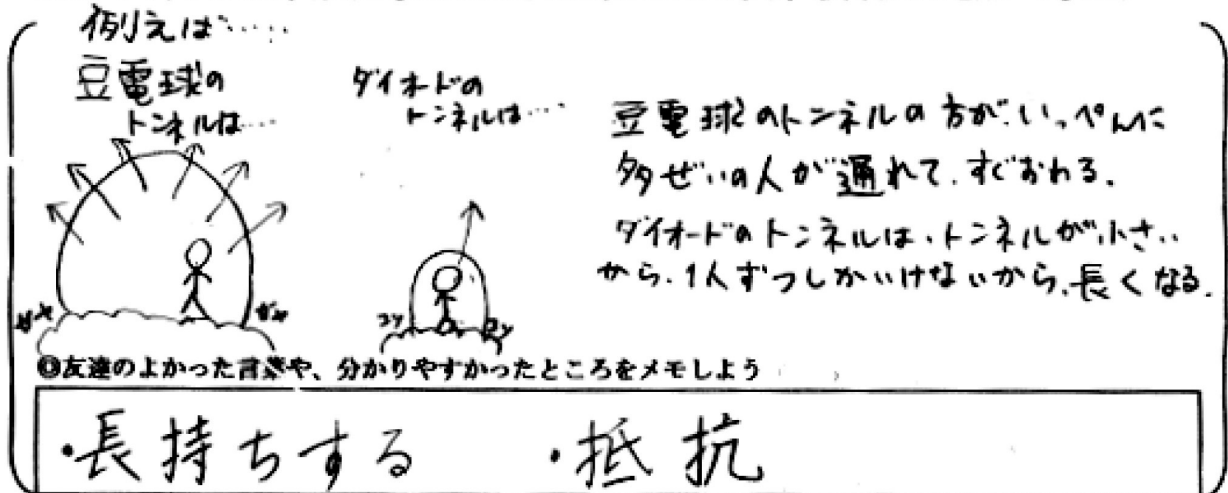 例えば……
豆電球の
トンネルは…
ダイオードの
トンネルは…
豆電球のトンネルの方が、いっぺんに
多ぜいの人が通れて、すぐおわる。
ダイオードのトンネルは、トンネルが小さい
から、1人ずつしかいけないから、長くなる。
◎友達のよかった言葉や、分かりやすかったところをメモしよう
・長持ちする ・抵抗